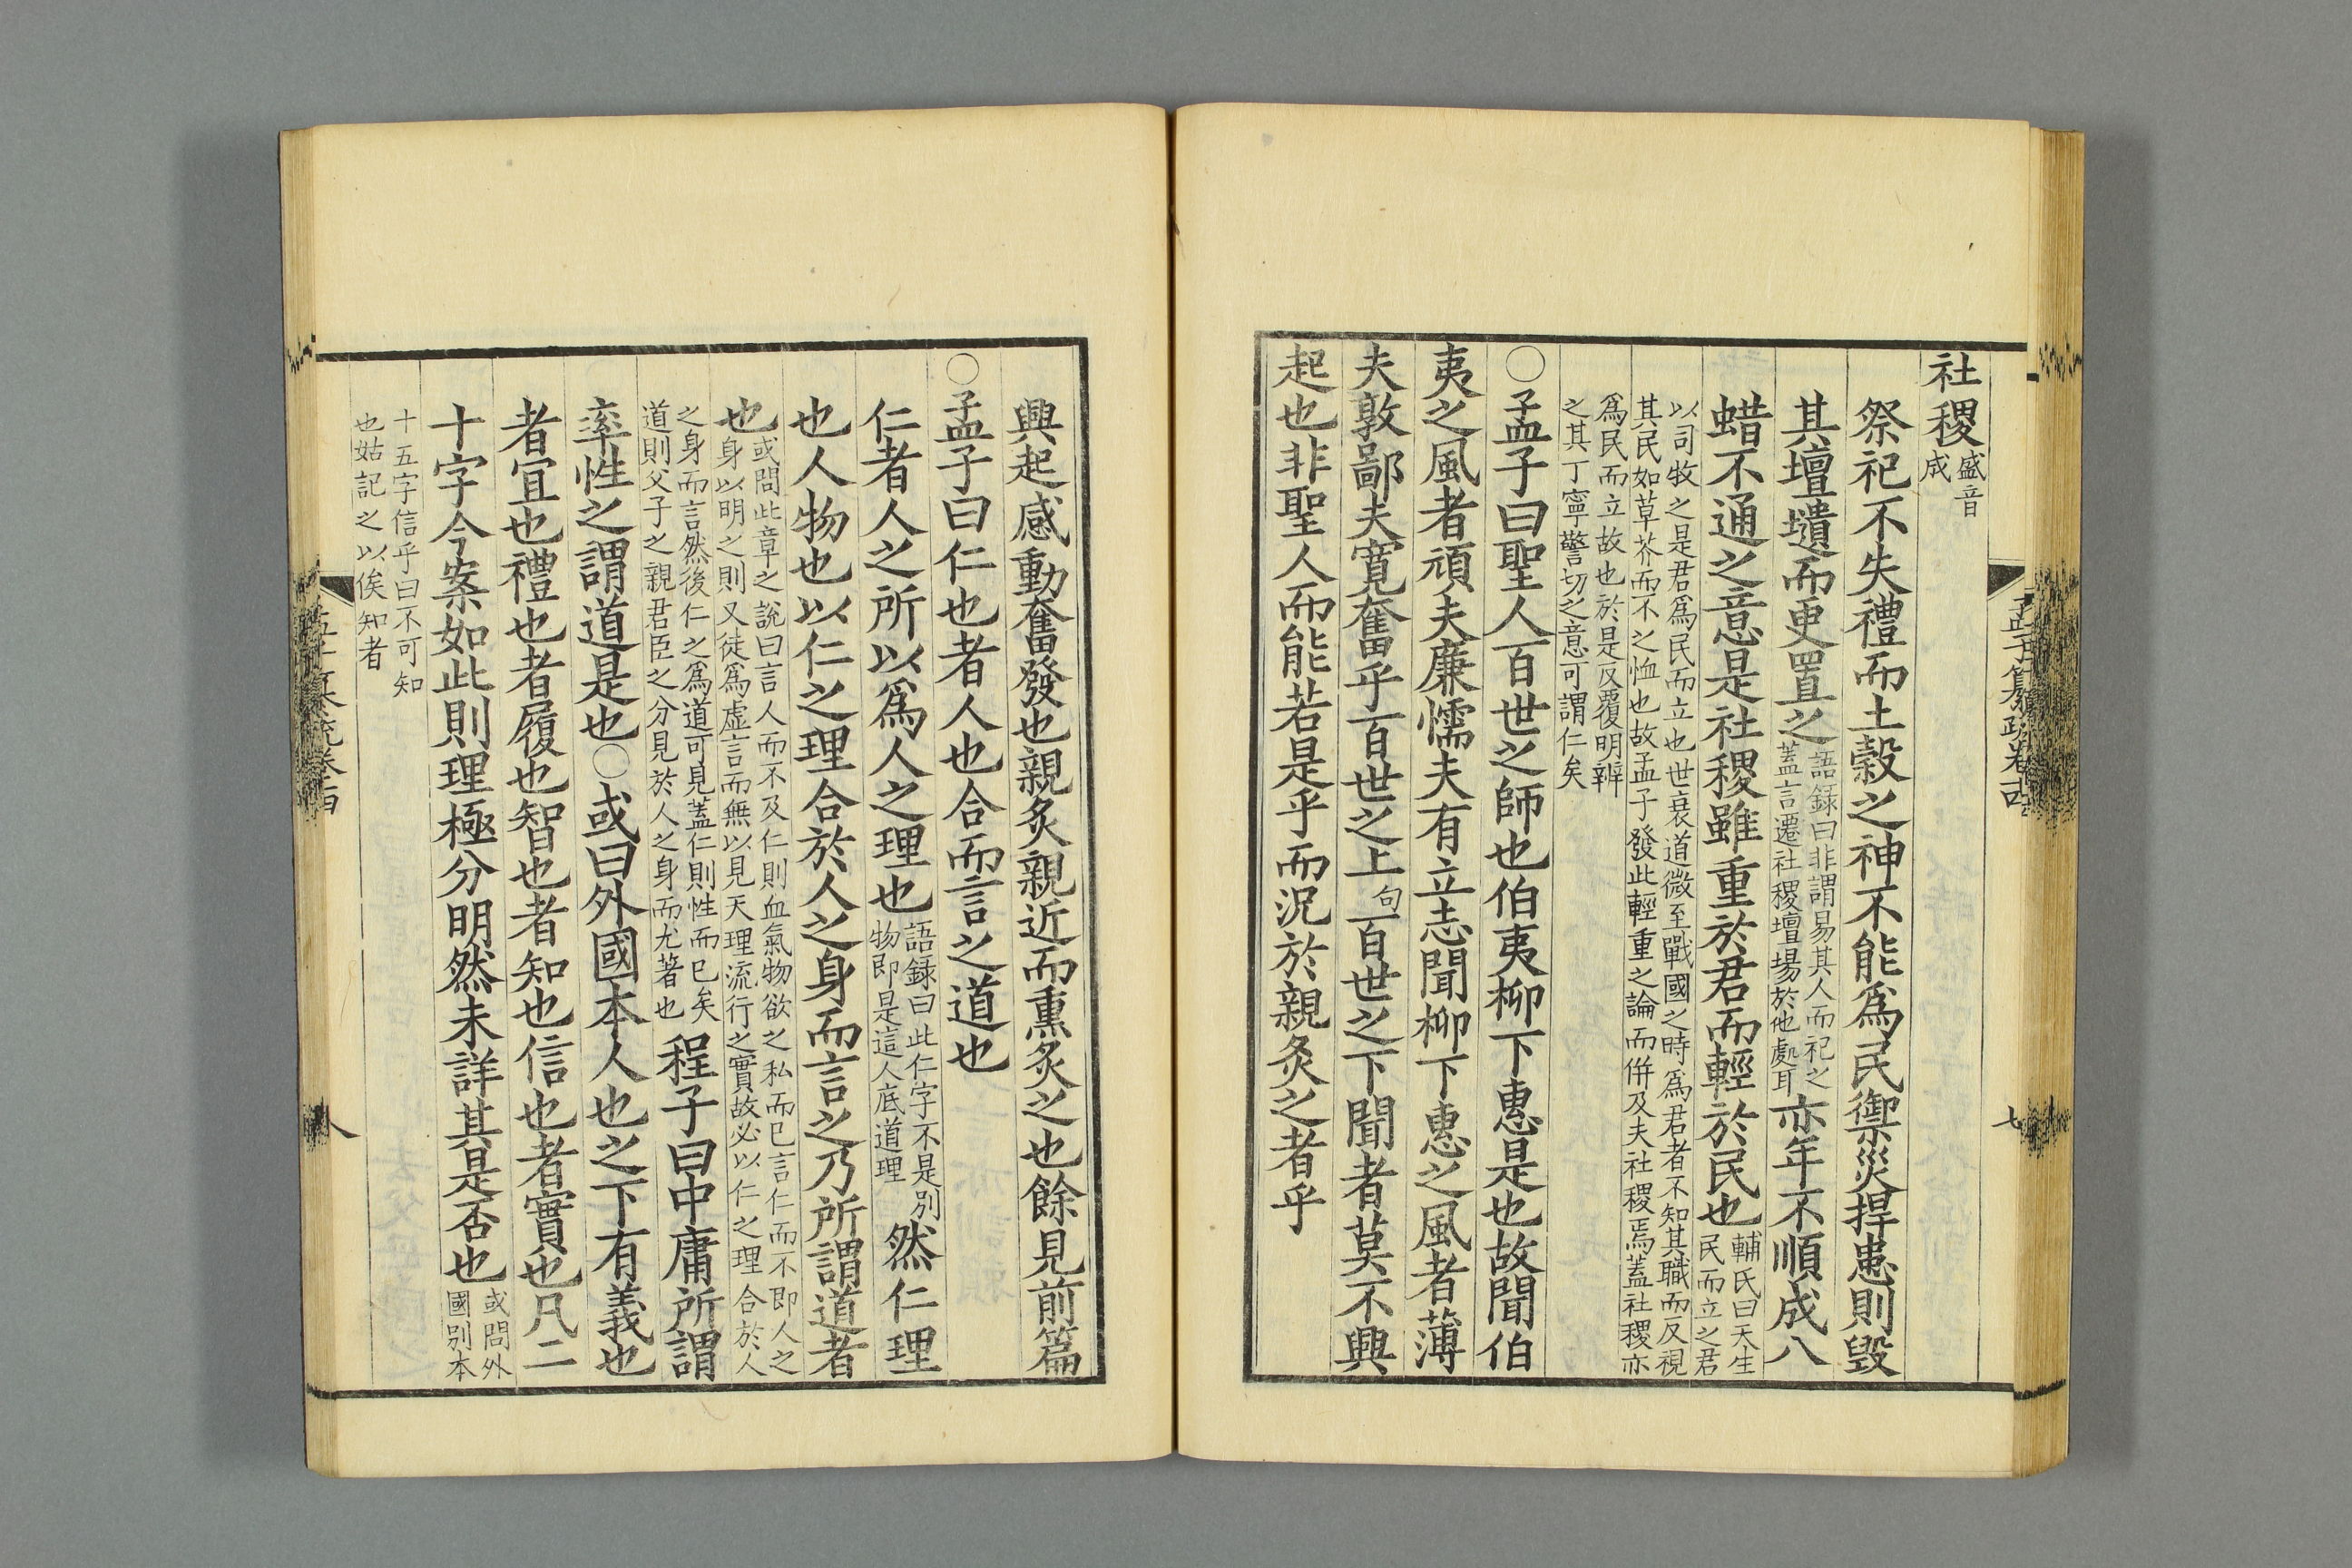 社稷盛音成
祭祀不失禮而土穀之神不能爲民禦災捍患則毀
其壇壝而更置之語錄曰非謂易其人而祀之蓋言遷社稷壇場於他處耳亦年不順成八
蜡不通之意是社稷雖重於君而輕於民也輔氏曰天生民而立之君
以司牧之是君爲民而立也世衰道微至戰國之時爲君者不知其職而反視
其民如草芥而不之恤也故孟子發此輕重之論而併及夫社稷焉蓋社稷亦
爲民而立故也於是反覆明辨
之其丁寧警切之意可謂仁矣
○孟子曰聖人百世之師也伯夷柳下惠是也故聞伯
夷之風者頑夫廉懦夫有立志聞柳下惠之風者薄
夫敦鄙夫寬奮乎百世之上句百世之下聞者莫不興
起也非聖人而能若是乎而況於親炙之者乎
孟子纂疏卷十四
七
興起感動奮發也親炙親近而熏炙之也餘見前篇
○孟子曰仁也者人也合而言之道也
仁者人之所以爲人之理也語錄曰此仁字不是別物即是這人底道理然仁理
也人物也以仁之理合於人之身而言之乃所謂道者
也或問此章之說曰言人而不及仁則血氣物欲之私而已言仁而不即人之
身以明之則又徒爲虛言而無以見天理流行之實故必以仁之理合於人
之身而言然後仁之爲道可見蓋仁則性而已矣
道則父子之親君臣之分見於人之身而尤著也程子曰中庸所謂
率性之謂道是也○或曰外國本人也之下有義也
者宜也禮也者履也智也者知也信也者實也凡二
十字今案如此則理極分明然未詳其是否也或問外國別本
十五字信乎曰不可知
也姑記之以俟知者
孟子纂疏卷十四
八